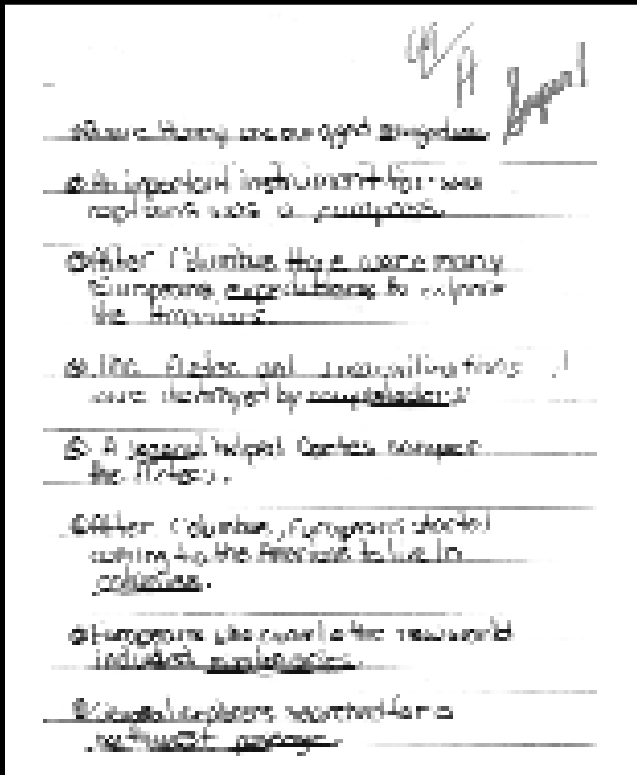 Super!
① Prince Henry encouraged navigation
② An important instrument for was
captains was a compass.
③ After Columbus there were many
European expeditions to explore
the Americas.
④ The Aztec and Inca civilizations
were destroyed by conquistadors
⑤ A legend helped Cortes conquer
the Aztecs.
⑥ After Columbus, Europeans started
coming to the Americas to live in
colonies.
⑦ Europeans who came to the new world
included missionaries.
⑧ Several explorers searched for a
northwest passage.